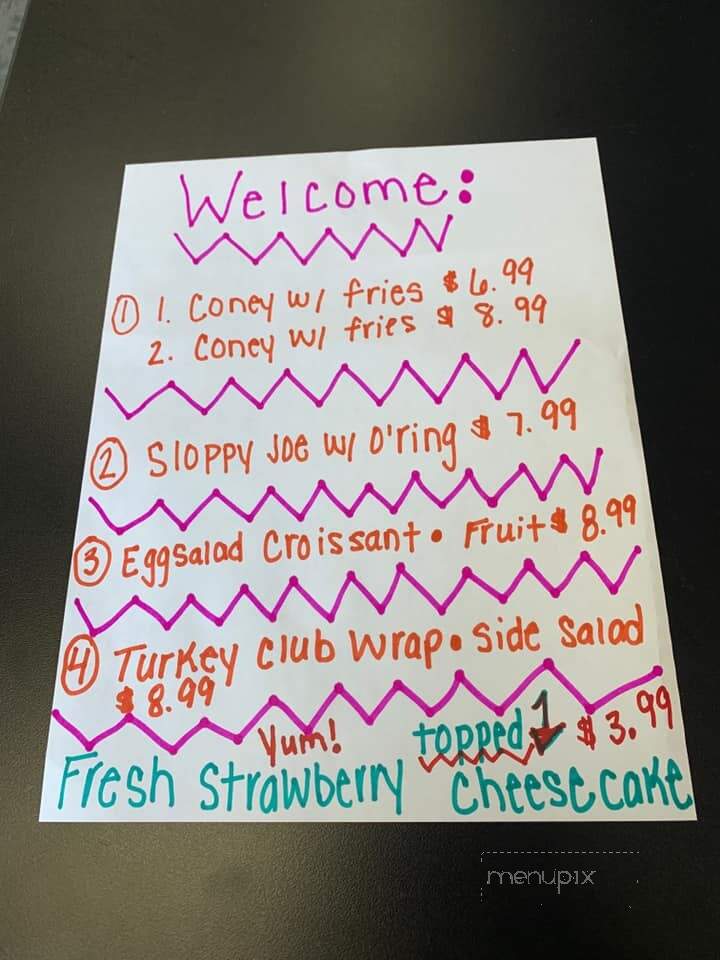 Welcome:
① 1. Coney w/ fries $6.99
2. Coney w/ fries $8.99
② Sloppy Joe w/ O'ring $7.99
③ Eggsalad Croissant • Fruit $8.99
④ Turkey Club Wrap • Side Salad
$8.99
Yum! topped $3.99
Fresh Strawberry Cheesecake
menupix